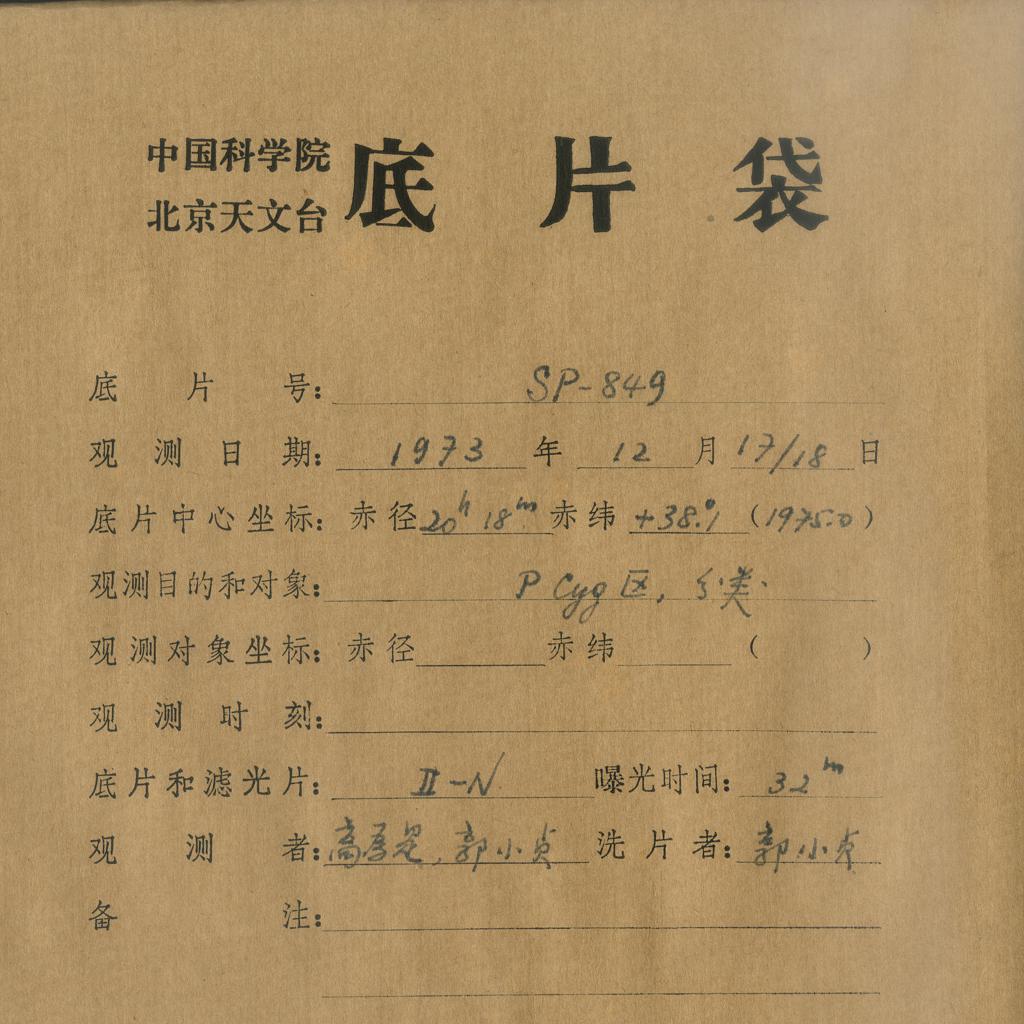 中国科学院
北京天文台
底片袋
底片号: SP-849
观测日期: 1973年12月17/18日
底片中心坐标: 赤径 20h 18m 赤纬 +38°.1 (1975.0)
观测目的和对象: P Cyg 区, 分类.
观测对象坐标: 赤径 赤纬 ( )
观测时刻:
底片和滤光片: II-N 曝光时间: 32m
观测者: 郭小贞 洗片者: 郭小贞
备注: